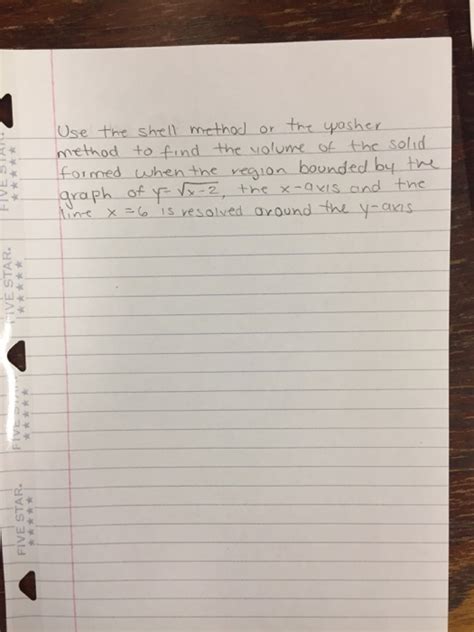 Use the shell method or the washer
method to find the volume of the solid
formed when the region bounded by the
graph of y= √x-2, the x-axis and the
line x =6 is resolved around the y-axis
FIVE STAR.
FIVE STAR.
FIVE STAR.
FIVE STAR.